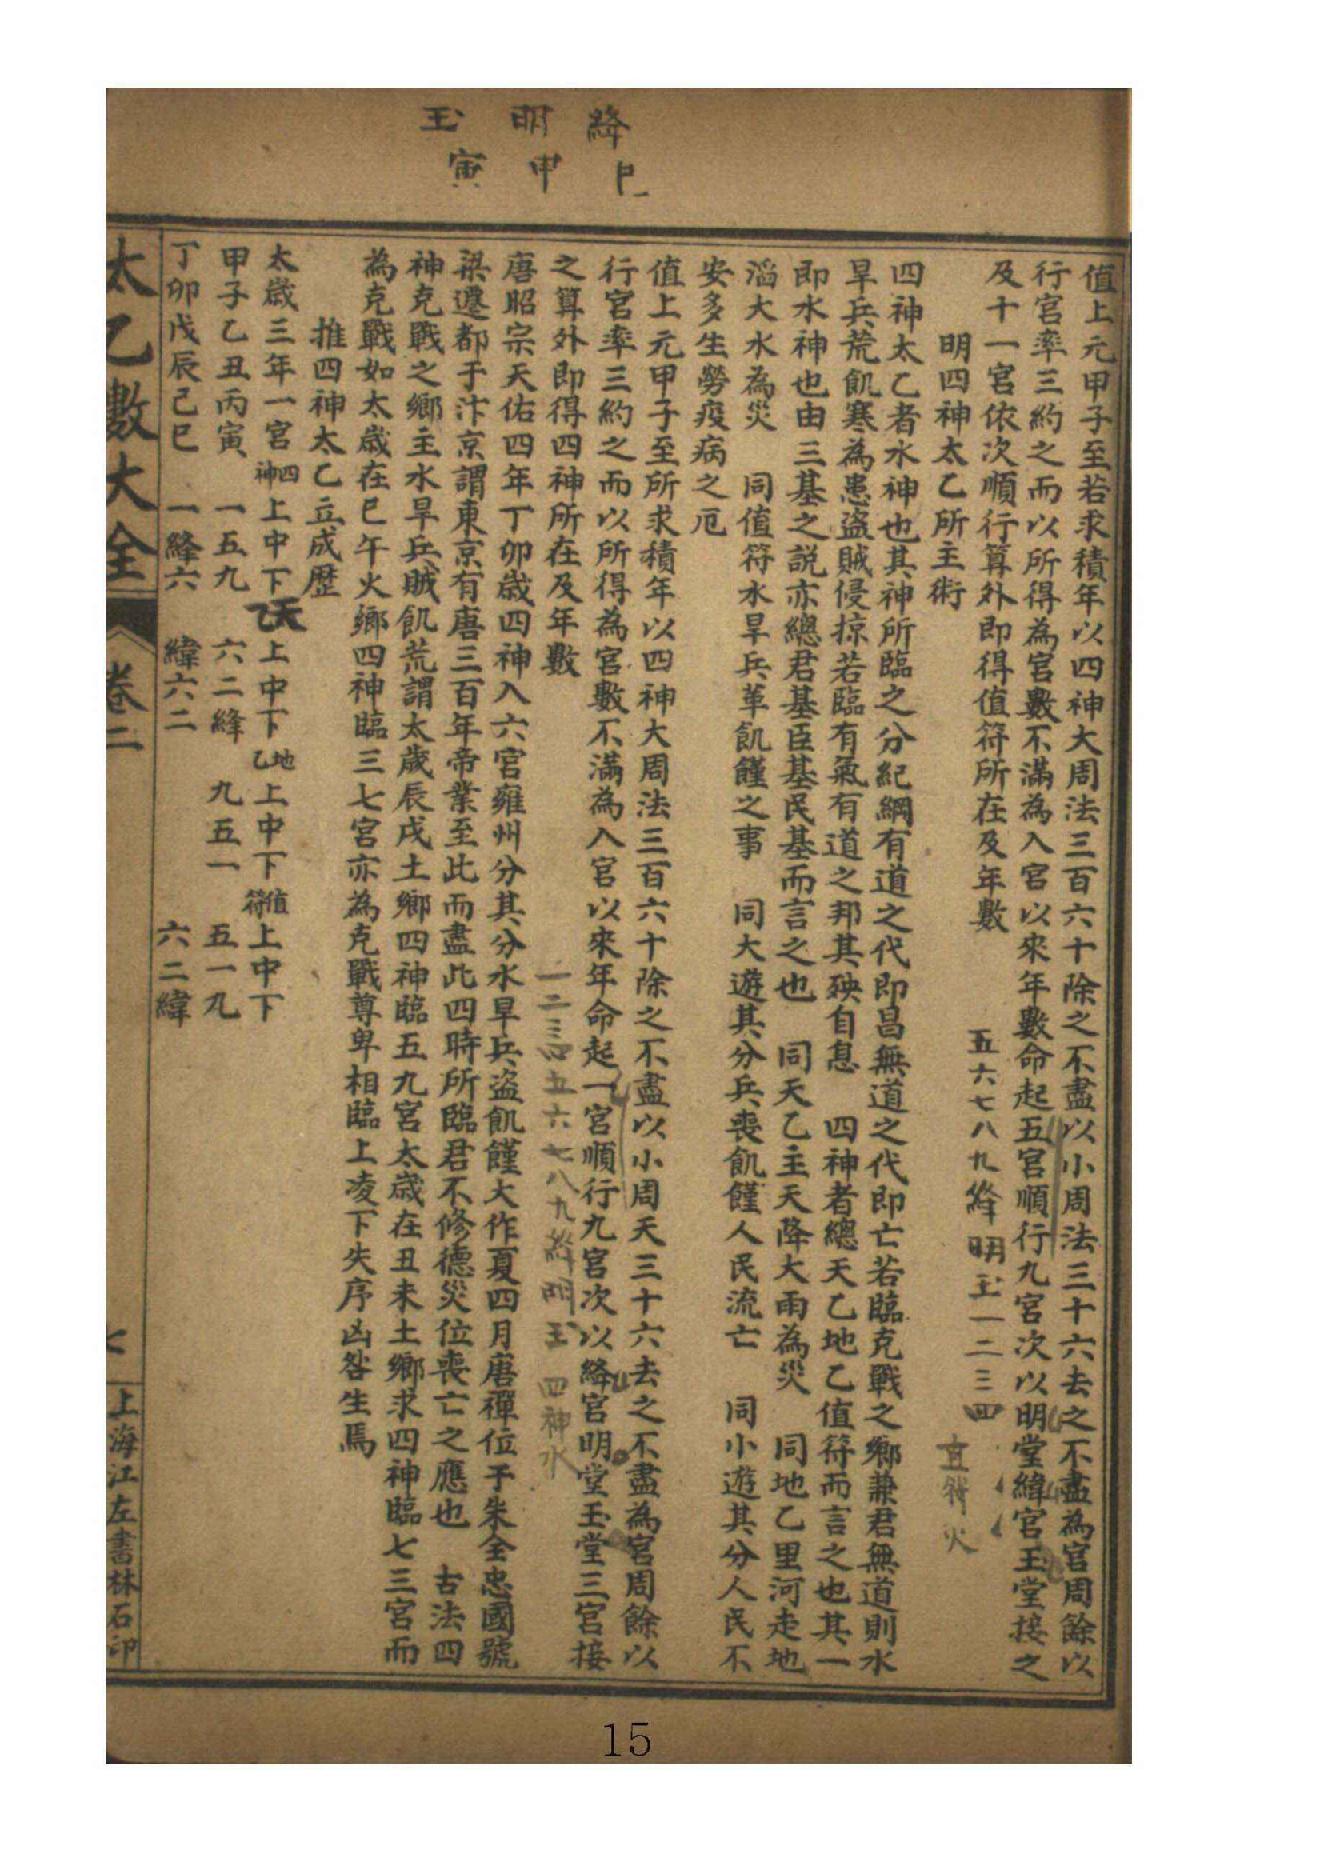 絳 明 玉
巳 申 寅
值上元甲子至若求積年以四神大周法三百六十除之不盡以小周法三十六去之不盡為宮周餘以
行宮率三約之而以所得為宮數不滿為入宮以來年數命起五宮順行九宮次以明堂緯宮玉堂接之
及十一宮依次順行算外即得值符所在及年數
五六七八九絳明玉一二三四
直符火
明四神太乙所主術
四神太乙者水神也其神所臨之分紀綱有道之代即昌無道之代即亡若臨克戰之鄉兼君無道則水
旱兵荒飢寒為患盜賊侵掠若臨有氣有道之邦其殃自息 四神者總天乙地乙值符而言之也其一
即水神也由三基之説亦總君基臣基民基而言之也 同天乙主天降大雨為災 同地乙里河走地
滔大水為災 同值符水旱兵革飢饉之事 同大遊其分兵喪飢饉人民流亡 同小遊其分人民不
安多生勞疫病之厄
值上元甲子至所求積年以四神大周法三百六十除之不盡以小周天三十六去之不盡為宮周餘以
行宮率三約之而以所得為宮數不滿為入宮以來年命起一宮順行九宮次以絳宮明堂玉堂三宮接
之算外即得四神所在及年數
一二三四五六七八九絳明玉 四神水
唐昭宗天佑四年丁卯歲四神入六宮雍州分其分水旱兵盜飢饉大作夏四月唐禪位于朱全忠國號
梁遷都于汴京謂東京有唐三百年帝業至此而盡此四時所臨君不修德災位喪亡之應也 古法四
神克戰之鄉主水旱兵賊飢荒謂太歲辰戌土鄉四神臨五九宮太歲在丑未土鄉求四神臨七三宮而
為克戰如太歲在巳午火鄉四神臨三七宮亦為克戰尊卑相臨上凌下失序凶咎生焉
推四神太乙立成歷
太歲三年一宮 四神 上中下 天乙 上中下 地乙 上中下 值符 上中下
甲子乙丑丙寅 一五九 六二絳 九五一 五一九
丁卯戊辰己巳 一絳六 緯六二 六二緯
太乙數大全 卷二 七 上海江左書林石印
15